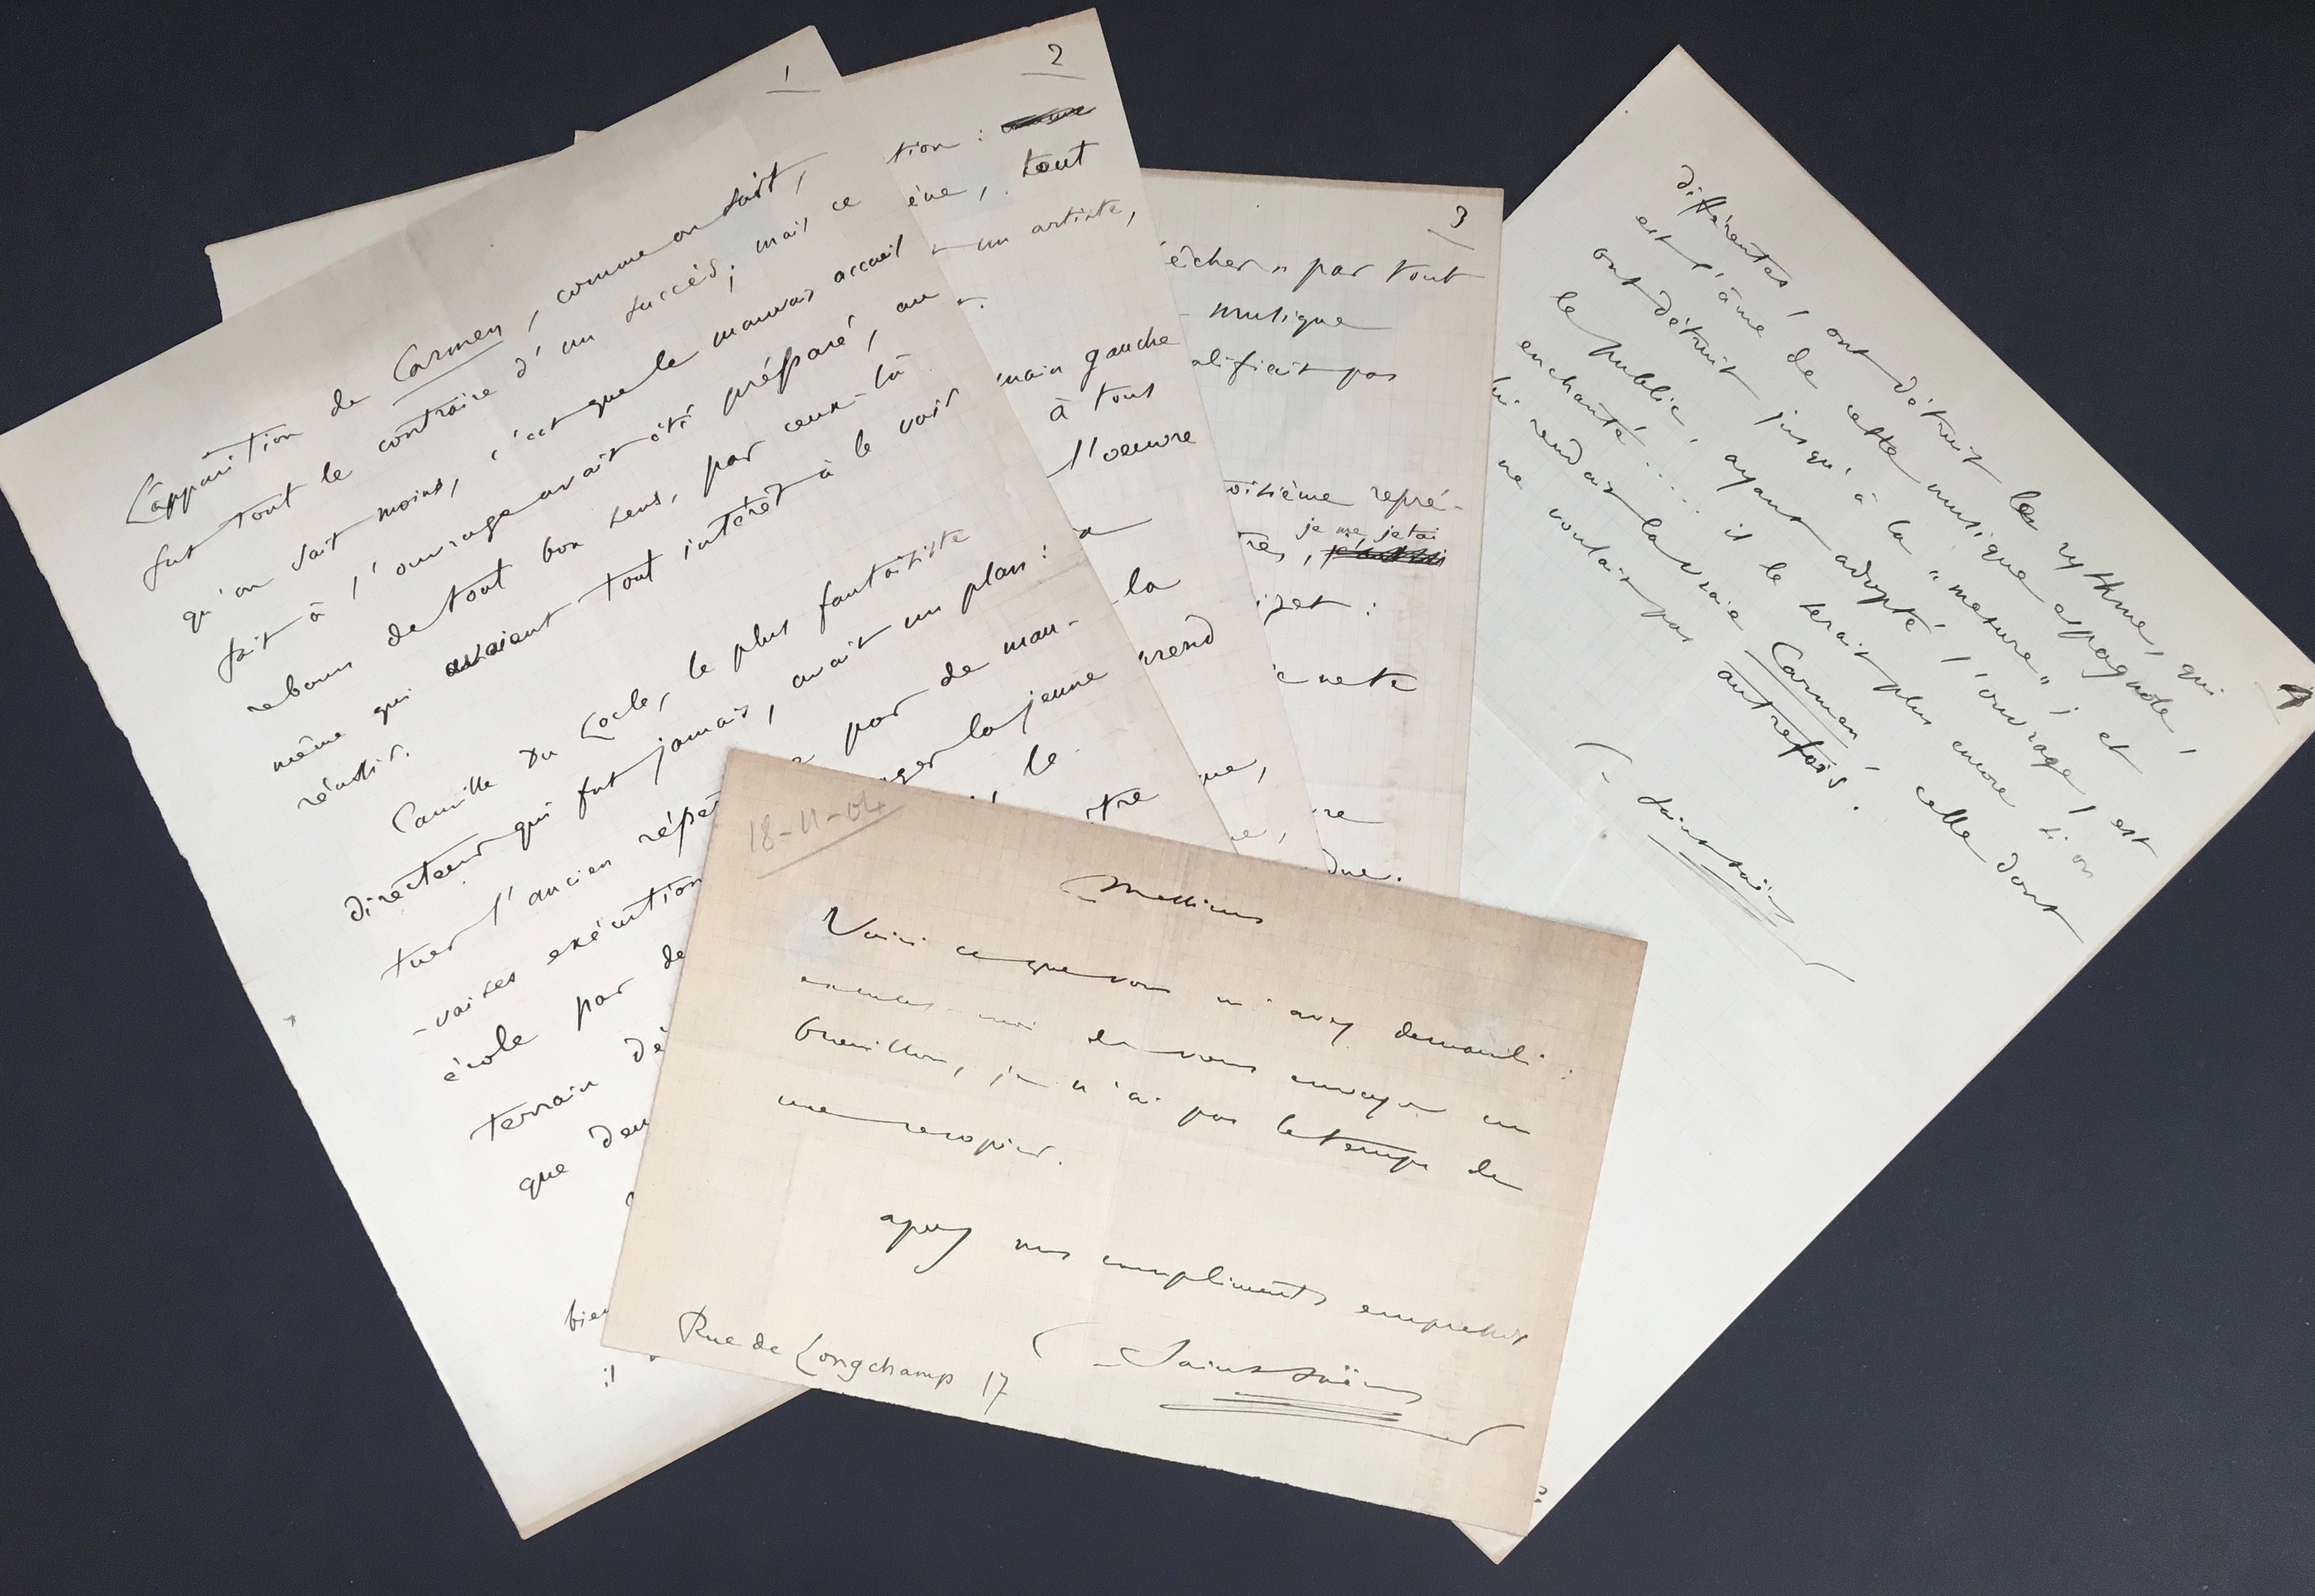 1
L'apparition de Carmen, comme on sait,
fut tout le contraire d'un succès; mais ce
qu'on sait moins, c'est que le mauvais accueil
fait à l'ouvrage avait été préparé, au
rebours de tout bon sens, par ceux-là
même qui avaient tout intérêt à le voir
réussir.
Camille du Locle, le plus fantaisiste
directeur qui fut jamais, avait un plan:
tuer l'ancien répe
par de mau-
-vaises exécution
ger la jeune
école par de
le
terrain dé
tre
que deu
bien
il
2
tion :
ène, tout
un artiste,
main gauche
à tous
l'oeuvre
la
rend
que,
e,
3
êcher » par tout
musique
alifiait pas
oisième repré-
je me jetai
tres,
izet :
nette
re
due.
4
différentes, ont détruit les rythmes, qui
est l'âme de cette musique espagnole,
ont détruit jusqu'à la "mesure"; et
le public, ayant adopté l'ouvrage, est
enchanté.... il le serait plus encore si on
lui rendait la vraie Carmen, celle dont
ne voulait pas autrefois.
C. Saint-Saëns
18-11-04
Messieurs
Voici ce que vous m'avez demandé :
excusez-moi de vous envoyer un
brouillon, je n'ai pas le temps de
me recopier.
agréez mes compliments empressés
C. Saint-Saëns
Rue de Longchamp 17